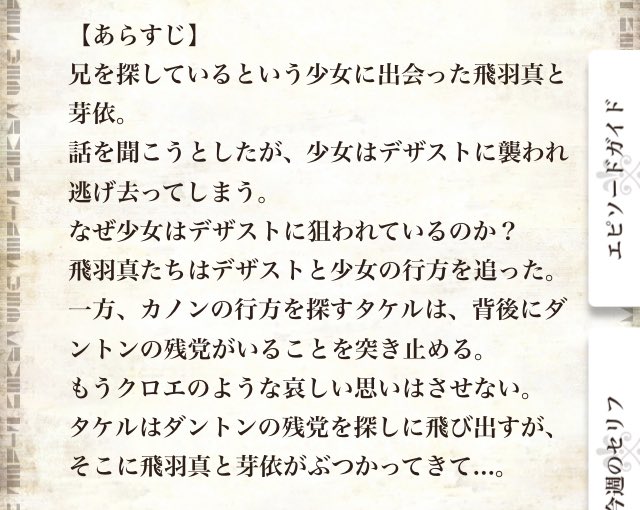 【あらすじ】
兄を探しているという少女に出会った飛羽真と
芽依。
話を聞こうとしたが、少女はデザストに襲われ
逃げ去ってしまう。
なぜ少女はデザストに狙われているのか？
飛羽真たちはデザストと少女の行方を追った。
一方、カノンの行方を探すタケルは、背後にダ
ントンの残党がいることを突き止める。
もうクロエのような哀しい思いはさせない。
タケルはダントンの残党を探しに飛び出すが、
そこに飛羽真と芽依がぶつかってきて…。
エピソードガイド
今週のセリフ